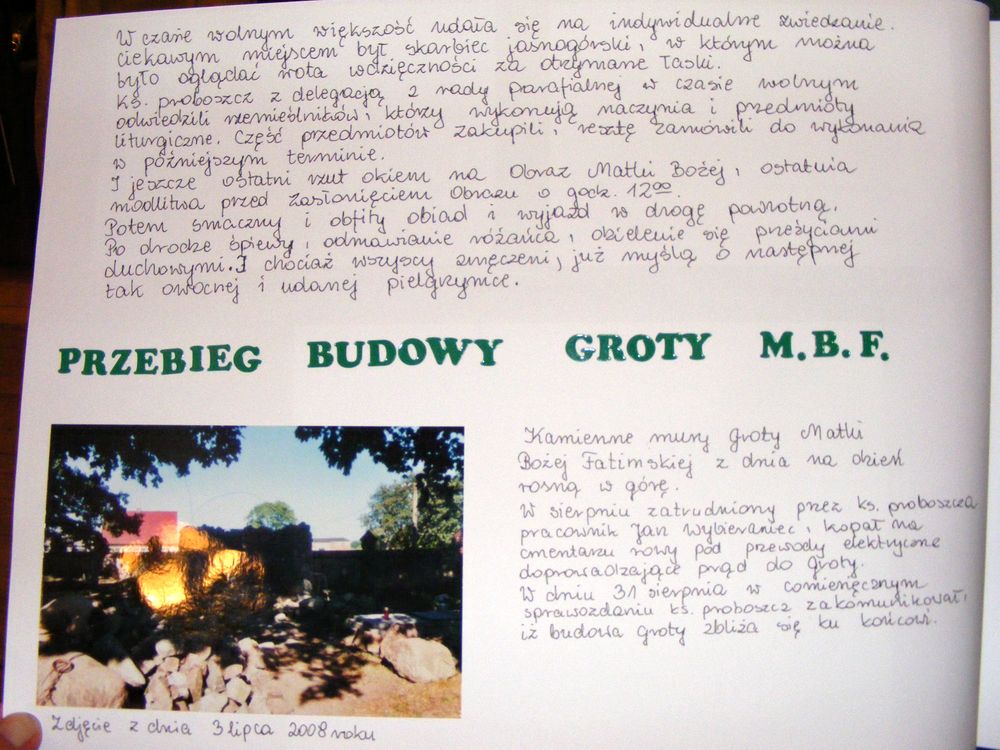 W czasie wolnym większość udała się na indywidualne zwiedzanie.
ciekawym miejscem był skarbiec jasnogórski, w którym można
było oglądać wota wdzięczności za otrzymane łaski.
ks. proboszcz z delegacją z rady parafialnej w czasie wolnym
odwiedzili rzemieślników, którzy wykonują naczynia i przedmioty
liturgiczne. Część przedmiotów zakupili, resztę zamówili do wykonania
w późniejszym terminie.
I jeszcze ostatni rzut okiem na Obraz Matki Bożej, ostatnia
modlitwa przed zasłonięciem Obrazu o godz. 12⁰⁰.
Potem smaczny i obfity obiad i wyjazd w drogę powrotną.
Po drodze śpiewy, odmawianie różańca, dzielenie się przeżyciami
duchowymi. I chociaż wszyscy zmęczeni, już myślą o następnej
tak owocnej i udanej pielgrzymce.
PRZEBIEG BUDOWY GROTY M.B.F.
Kamienne mury Groty Matki
Bożej Fatimskiej z dnia na dzień
rosną w górę.
W sierpniu zatrudniony przez ks. proboszcza
pracownik Jan Wybieraniec, kopał na
cmentarzu rowy pod przewody elektryczne
doprowadzające prąd do groty.
W dniu 31 sierpnia w comiesięcznym
sprawozdaniu ks. proboszcz zakomunikował,
iż budowa groty zbliża się ku końcowi.
Zdjęcie z dnia 3 lipca 2008 roku